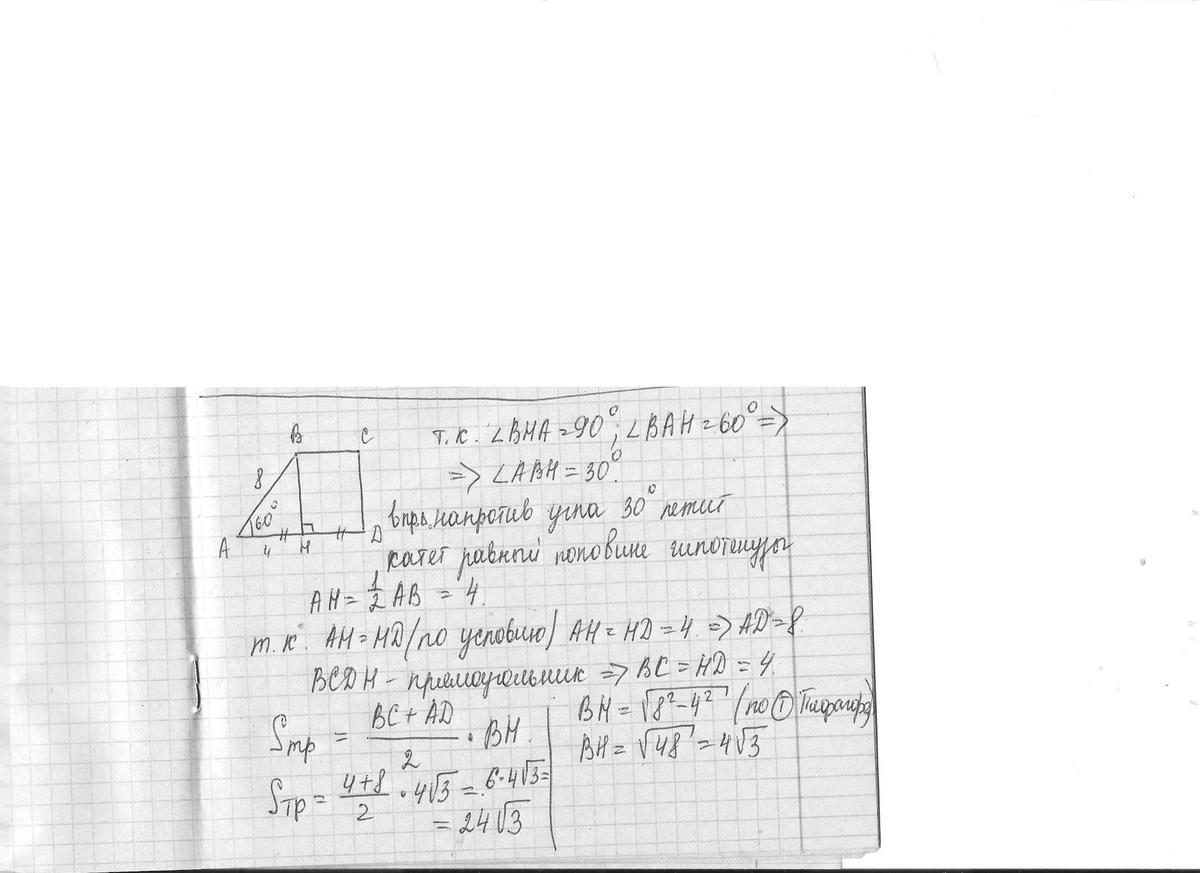 B C
8
60°
A 4 H D
т.к. ∠BHA = 90°; ∠BAH = 60° =>
=> ∠ABH = 30°.
в пр.Δ. напротив угла 30° лежит
катет равный половине гипотенузы
AH = 1/2 AB = 4.
т.к. AH = HD (по условию) AH = HD = 4. => AD = 8.
BCDH - прямоугольник => BC = HD = 4.
Sтр = (BC + AD)/2 · BH.
Sтр = (4+8)/2 · 4√3 = 6·4√3 =
= 24√3
BH = √(8² - 4²) (по Т Пифагора)
BH = √48 = 4√3